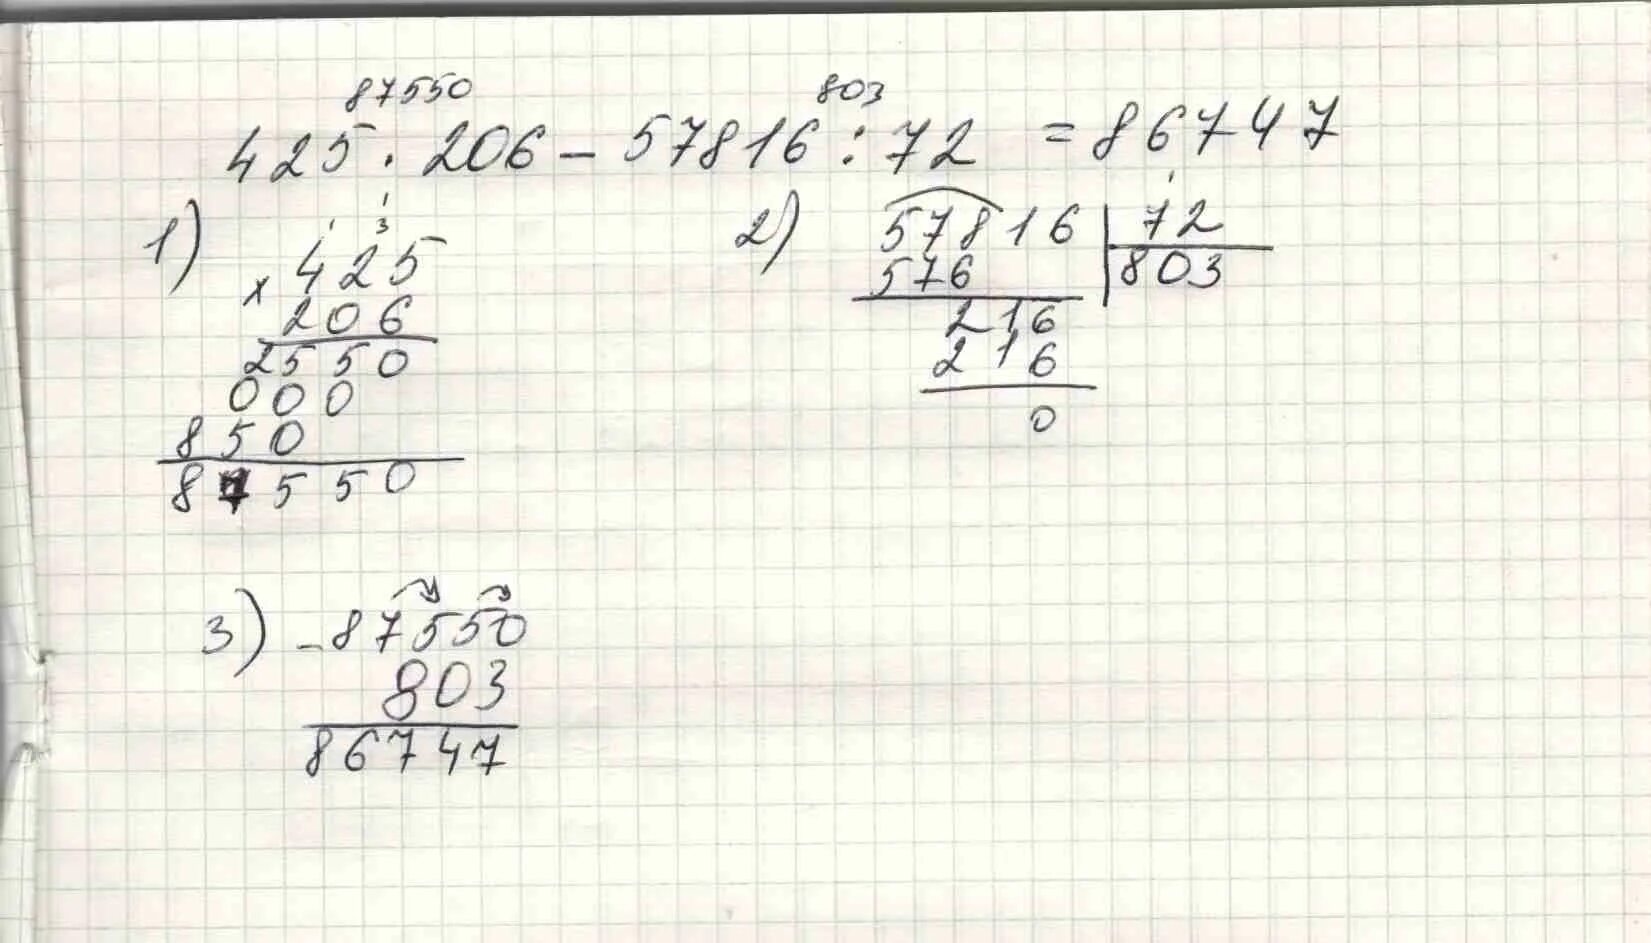 87550 803
425 · 206 - 57816 : 72 = 86747
1)
1
1 3
425
× 206
2550
000
850
87550
2)
1
57816 | 72
576 | 803
216
216
0
3)
- 87550
803
86747